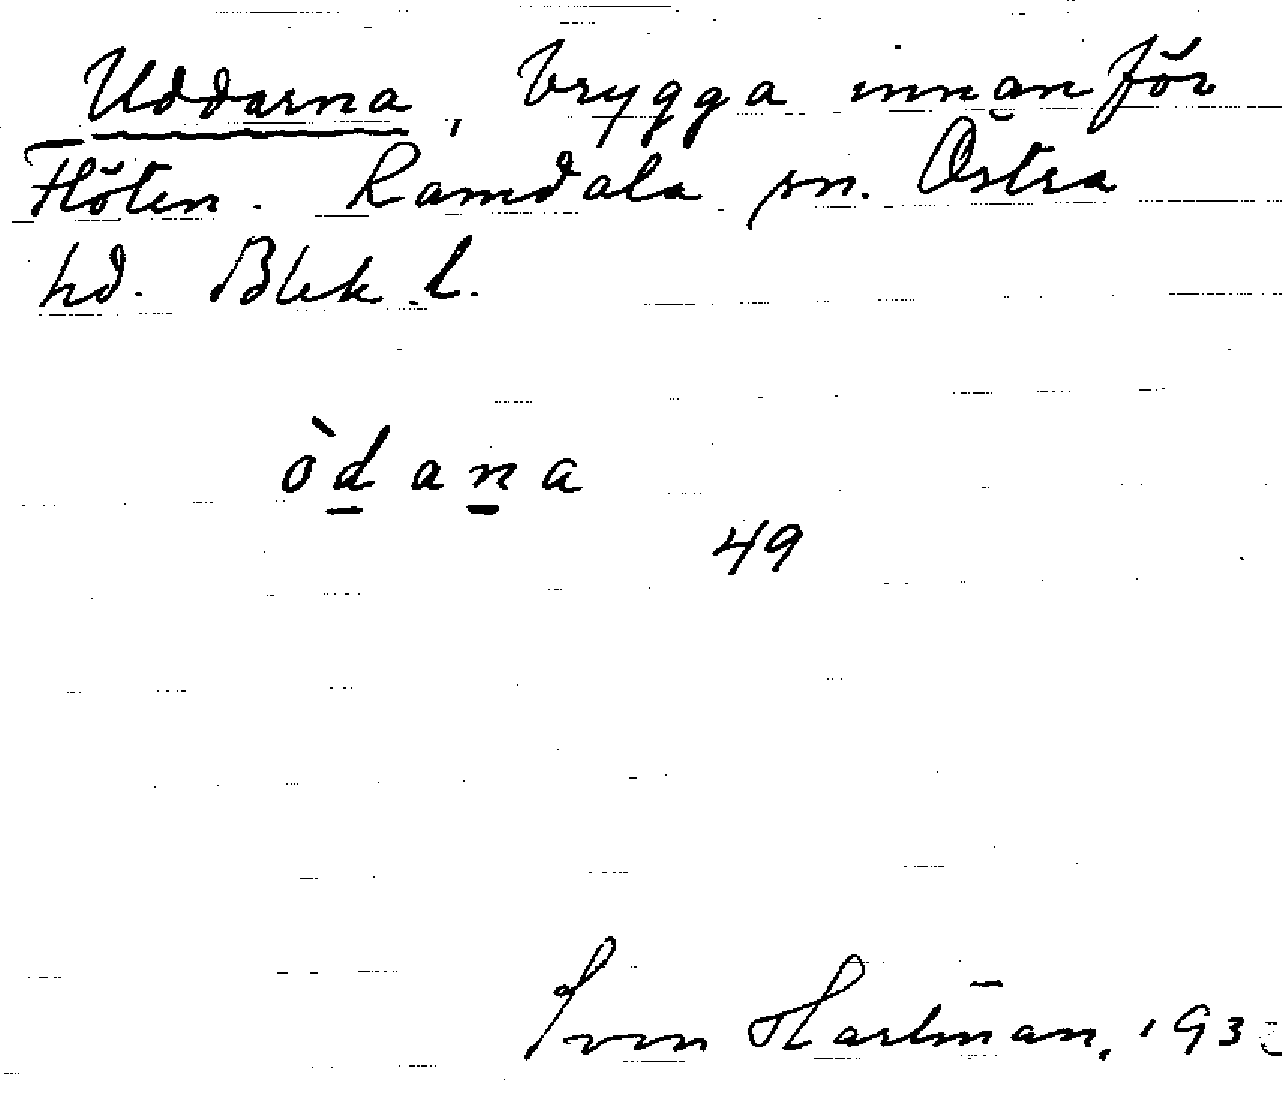 Uddarna, brygga innanför
Flöten. Ramdala sn. Östra
hd. Blek. l.
òdana
49
Sven Hartman, 193